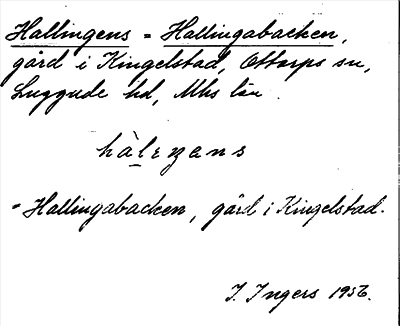 Hallingens = Hallingabacken,
gård i Kingelstad, Ottarps sn,
Luggude hd, Mhs län.
- Hallingabacken, gård i Kingelstad.
I. Ingers 1956.